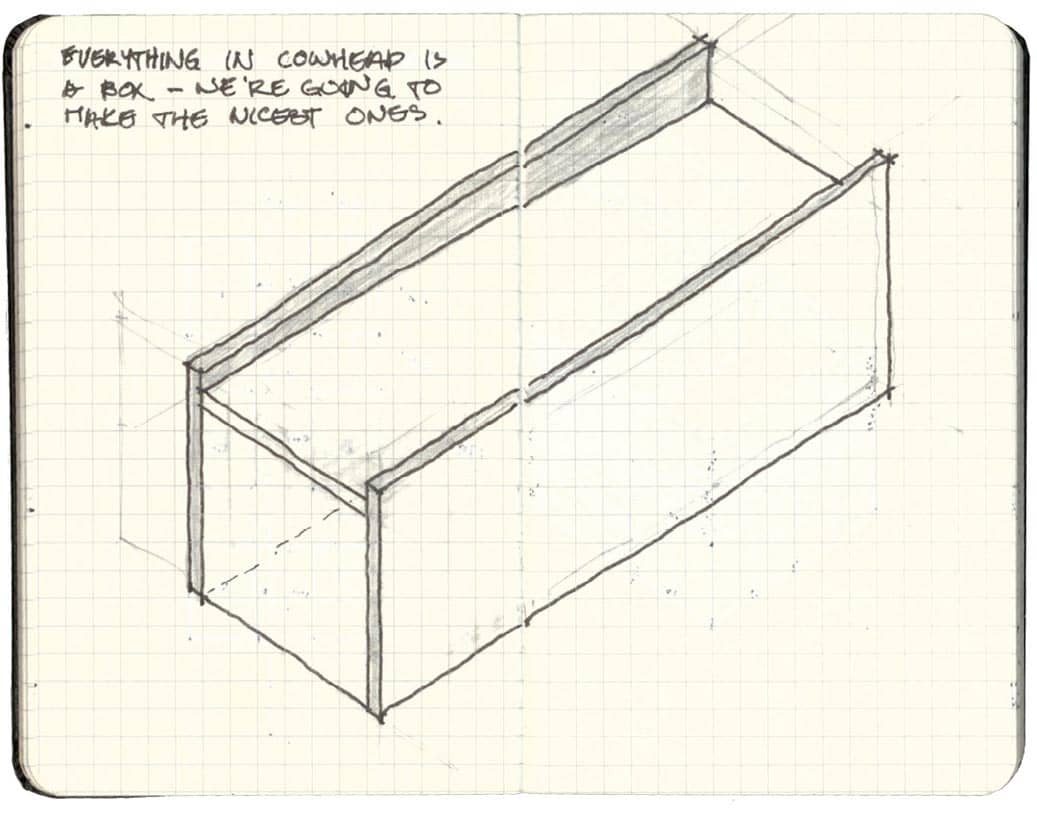 EVERYTHING IN COWHEAD IS
A BOX - WE'RE GOING TO
MAKE THE NICEST ONES.